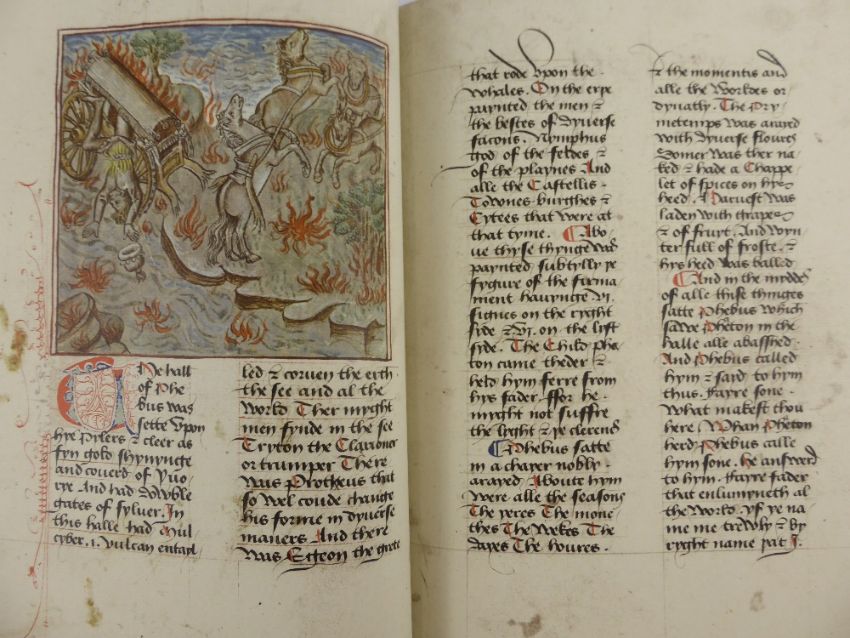 The hall
of Phe
bus was
sette Vpon
hye Pylers & cleer as
fyn gold shynynge
and couerd of yuo
rye And had dowble
gates of syluer. In
this halle had Mul
cyber .i. vulcan entayl
led & coruen the erth
the see and al the
World Ther myght
men fynde in the see
Tryton the Clarioner
or trumper There
was Protheus that
so wel coude change
his forme in dyuerse
maners And there
was Egeon the grete
that rode vpon the
whales. On the erthe
paynted the men &
the bestes of dyuerse
facons. Nymphus
god of the feldes &
of the playnes And
alle the Castellis
Townes burghes &
Cytees that were at
that tyme. Abo
ue thyse thynge was
paynted subtylly ye
fygure of the firma
ment hauynge VI.
signes on the ryght
syde & VI. on the lift
syde. The Child phe
ton came theder &
held hym ferre from
hys fader ffor he
myght not suffre
the lyght & ye clerenes
Phebus satte
in a chayer nobly
arayed Aboute hym
were alle the seasons
The yeres The mone
thes The wekes The
dayes The houres.
& the momentis and
alle the worldes or
dynatly. The Pry
metemps was arayed
with dyuerse floures
Somer was ther na
ked & hade a Chappe
let of spices on hys
heed. & Haruest was
laden with thrapes
& of fruyt. And wyn
ter full of froste. &
hys heed was balled
And in the myddes
of alle thise thinges
satte Phebus which
sawe Pheton in the
halle alle abasshed.
And Phebus called
hym & said to hym
thus. fayre sone.
What makest thou
here / Whan Pheton
herd Phebus calle
hym sone. he answerd
to hym. fayre fader
that enlumyneth al
the world. yf ye na
me me trewly & by
ryght name pat I.